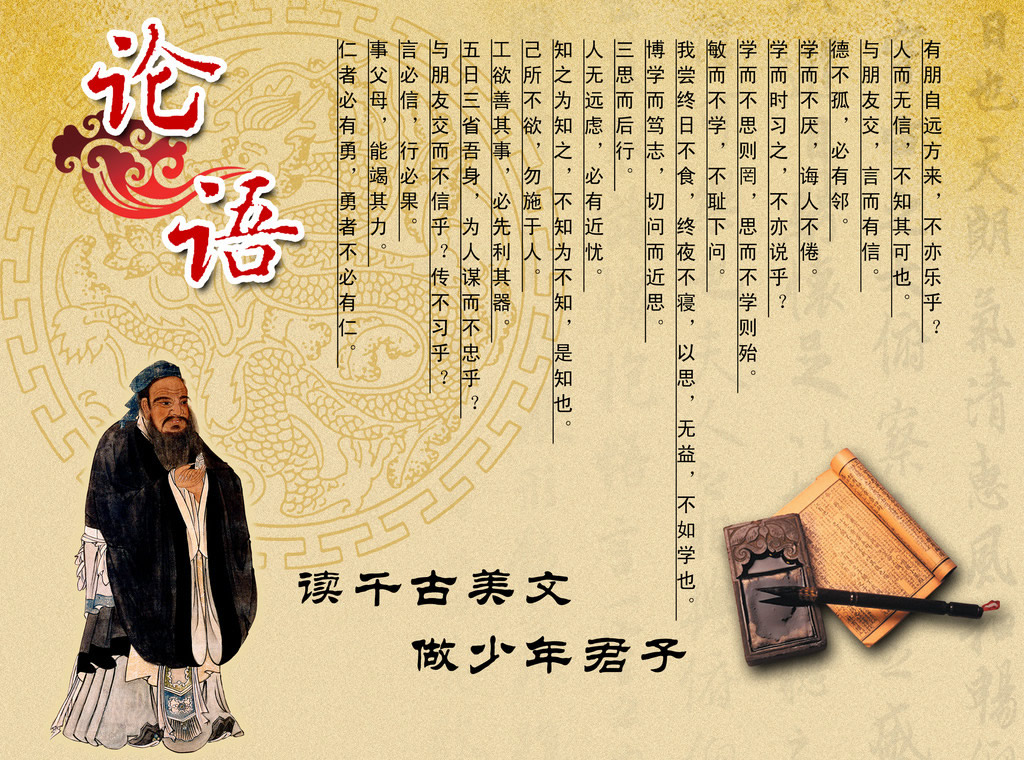 论语
有朋自远方来，不亦乐乎？
人而无信，不知其可也。
与朋友交，言而有信。
德不孤，必有邻。
学而不厌，诲人不倦。
学而时习之，不亦说乎？
学而不思则罔，思而不学则殆。
敏而不学，不耻下问。
我尝终日不食，终夜不寝，以思，无益，不如学也。
博学而笃志，切问而近思。
三思而后行。
人无远虑，必有近忧。
知之为知之，不知为不知，是知也。
己所不欲，勿施于人。
工欲善其事，必先利其器。
五日三省吾身，为人谋而不忠乎？
与朋友交而不信乎？传不习乎？
言必信，行必果。
事父母，能竭其力。
仁者必有勇，勇者不必有仁。
读千古美文
做少年君子